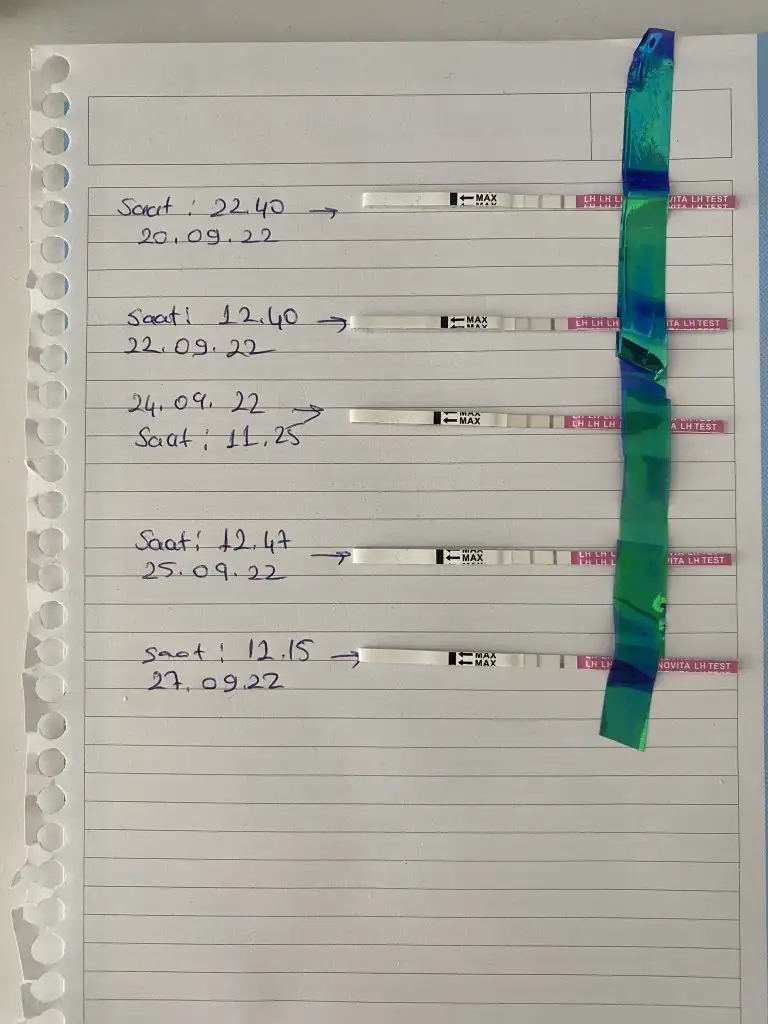 Saat : 22.40 →
20.09.22
← MAX
LH LH L
VITA LH TEST
Saat : 12.40 →
22.09.22
← MAX
LH LH LH
TA LH TEST
24.09.22
Saat : 11.25
← MAX
LH LH LH
LH TEST
Saat : 12.47 →
25.09.22
← MAX
LH LH L
VITA LH TEST
saat : 12.15 →
27.09.22
← MAX
LH LH L
NOVITA LH TEST